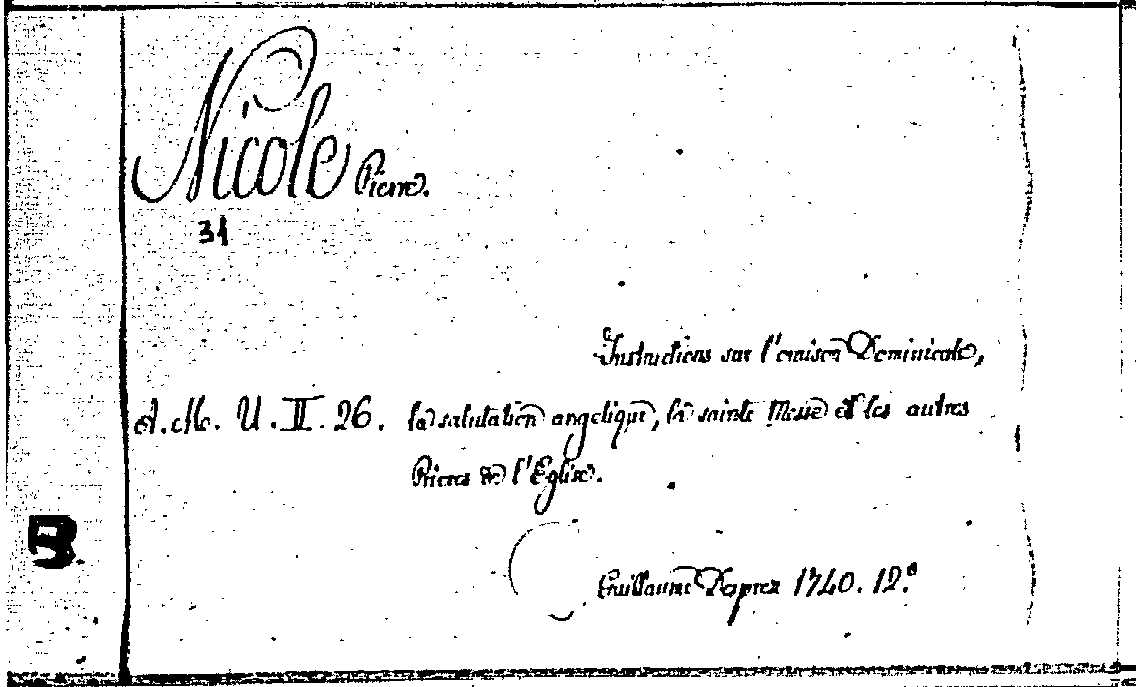 Nicole Pierre.
31
Instructions sur l'oraison Dominicale,
A. M. U. II. 26. la salutation angelique, la sainte Messe et les autres
Prieres de l'Eglise.
Guillaume Desprez 1740. 12.°
B.